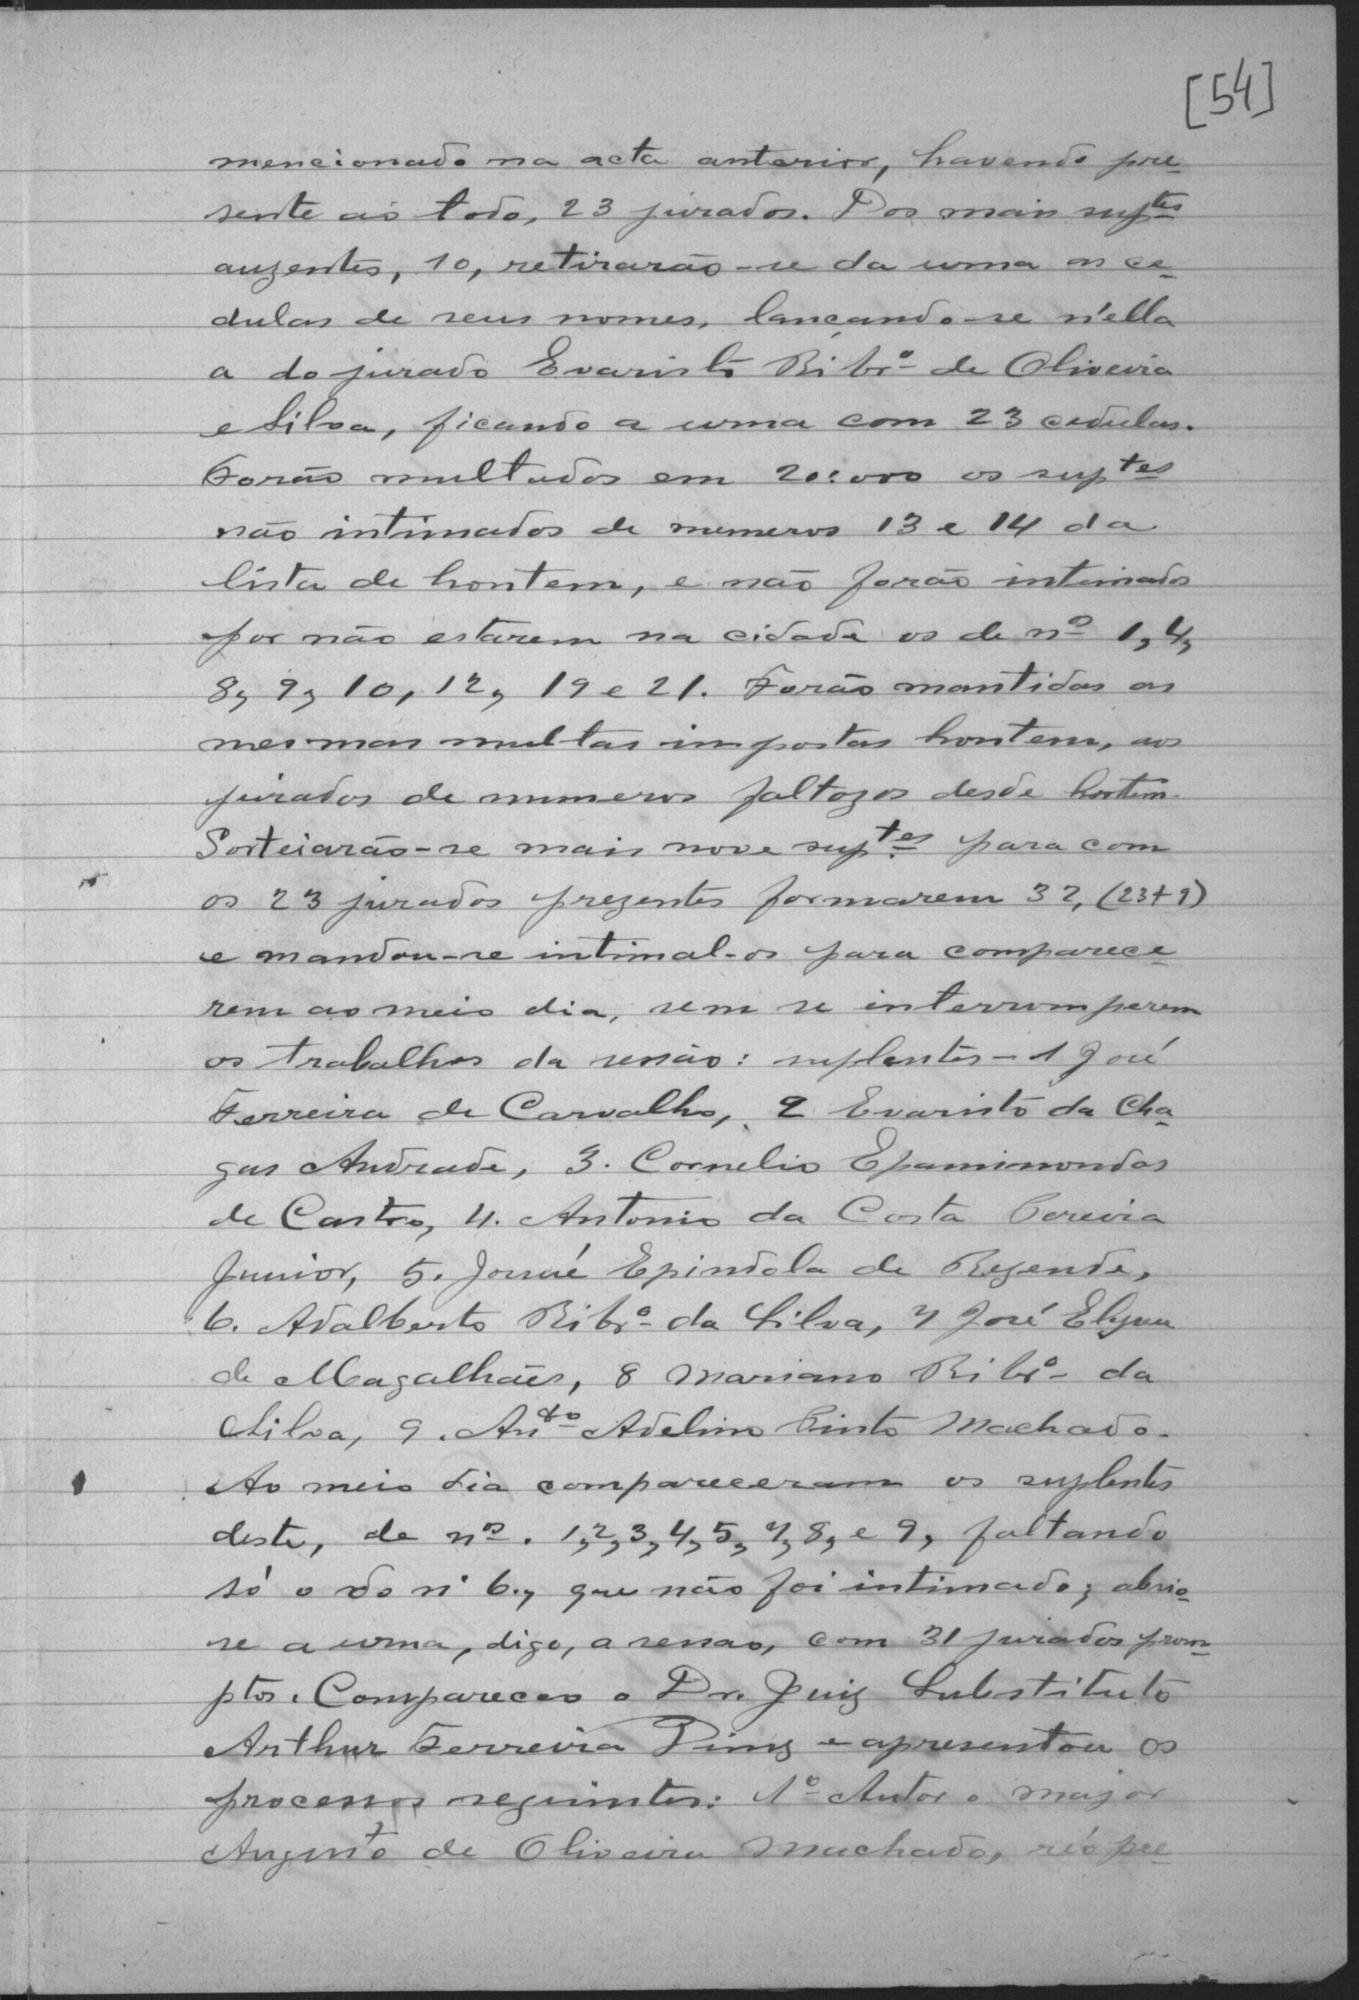 [54]
mencionado na acta anterior, havendo pre-
sente ao todo, 23 jurados. Dos mais sup.tes
auzentes, 10, retirarão-se da urna as ce-
dulas de seus nomes, lançando-se n'ella
a do jurado Evaristo Ribr.º de Oliveira
e Silva, ficando a urna com 23 cedulas.
Forão multados em 20:000 os sup.tes
não intimados de numeros 13 e 14 da
lista de hontem, e não forão intimados
por não estarem na cidade os de nos 1, 4,
8, 9, 10, 12, 19 e 21. Forão mantidas as
mesmas multas impostas hontem, aos
jurados de numeros faltozos desde hontem.
Sorteiarão-se mais nove sup.tes para com
os 23 jurados prezentes formarem 32, (23+9)
e mandou-se intimal-os para comparece-
rem ao meio dia, sem se interromperem
os trabalhos da sessão: suplentes - 1 José
Ferreira de Carvalho, 2 Evaristo da Cha-
gas Andrade, 3. Cornelio Epamimondas
de Castro, 4. Antonio da Costa Pereira
Junior, 5. Josué Epindola de Rezende,
6. Adalberto Ribr.º da Silva, 7 José Elyseu
de Magalhães, 8 Mariano Ribr.º da
Silva, 9. An.to Adelino Pinto Machado.
Ao meio dia compareceram os suplentes
deste, de nos. 1, 2, 3, 4, 5, 7, 8, e 9, faltando
só o do nº 6., que não foi intimado; abrio-
se a urna, digo, a sessao, com 31 jurados prom-
ptos. Compareceo o Dr. Juiz Substituto
Arthur Ferreira Diniz e apresentou os
processos seguintes: 1º Autor o major
Augusto de Oliveira Machado, réo pre-